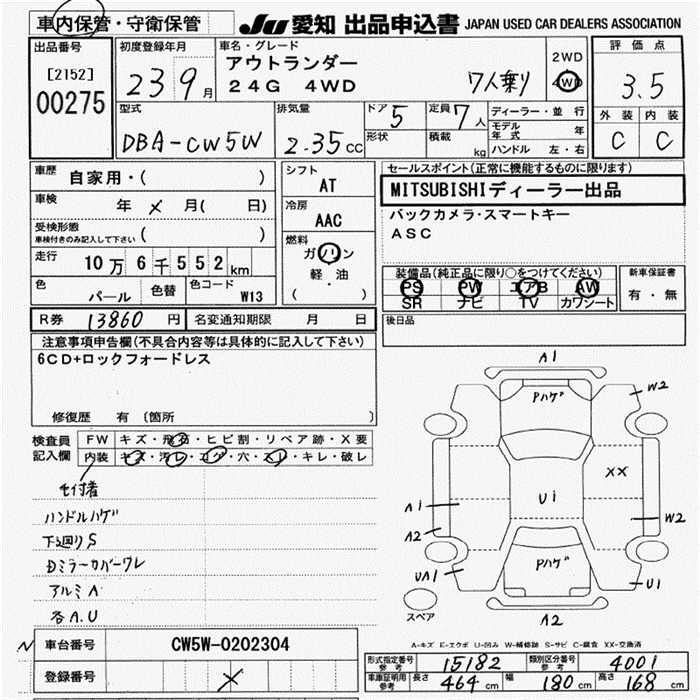 車内保管・守衛保管
JU 愛知 出品申込書 JAPAN USED CAR DEALERS ASSOCIATION
出品番号
[2152]
00275
初度登録年月
23 9 月
車名・グレード
アウトランダー
24G 4WD
7人乗り
2WD
4WD
評価点
3.5
外装 内装
C C
型式
DBA-CW5W
排気量
2.35 CC
ドア 5
形状
定員 7 人
積載 kg
ディーラー・並行
モデル年式 年
ハンドル 左・右
車歴
自家用・( )
車検
年 × 月( 日)
受検形態
車検付きのみ記入して下さい ( )
走行
10万6千552km
色
パール
色替
色コード
W13
シフト
AT
冷房
AAC
燃料
ガソリン
軽・油
( )
セールスポイント(正常に機能するものに限ります)
MITSUBISHIディーラー出品
バックカメラ・スマートキー
ASC
装備品(純正品に限り○をつけてください)
PS PW エアB AW
SR ナビ TV カワシート
新車保証書
有・無
R券 13860 円 名変通知期限 月 日
後日品
注意事項申告欄(不具合内容等は具体的に記入して下さい)
6CD+ロックフォードレス
修復歴 有 〔箇所 〕
検査員
記入欄
FW キズ・飛石・ヒビ割・リペア跡・X要
内装 キズ・汚レ・コゲ・穴・スレ・キレ・破レ
モ付者
ハンドルハゲ
下廻りS
Dミラーカバーワレ
アルミA
各A.U
A1
W2
Pハゲ
XX
A1
U1
W2
A2
UA1
Pハゲ
U1
スペア
A2
A-キズ E-エクボ U-凹み W-補修跡 S-サビ C-腐食 XX-交換済
車台番号 CW5W-0202304
登録番号 ×
形式指定番号 参考 15182 類別区分番号 参考 4001
車庫証明用 参考 長さ 464 cm 幅 180 cm 高さ 168 cm